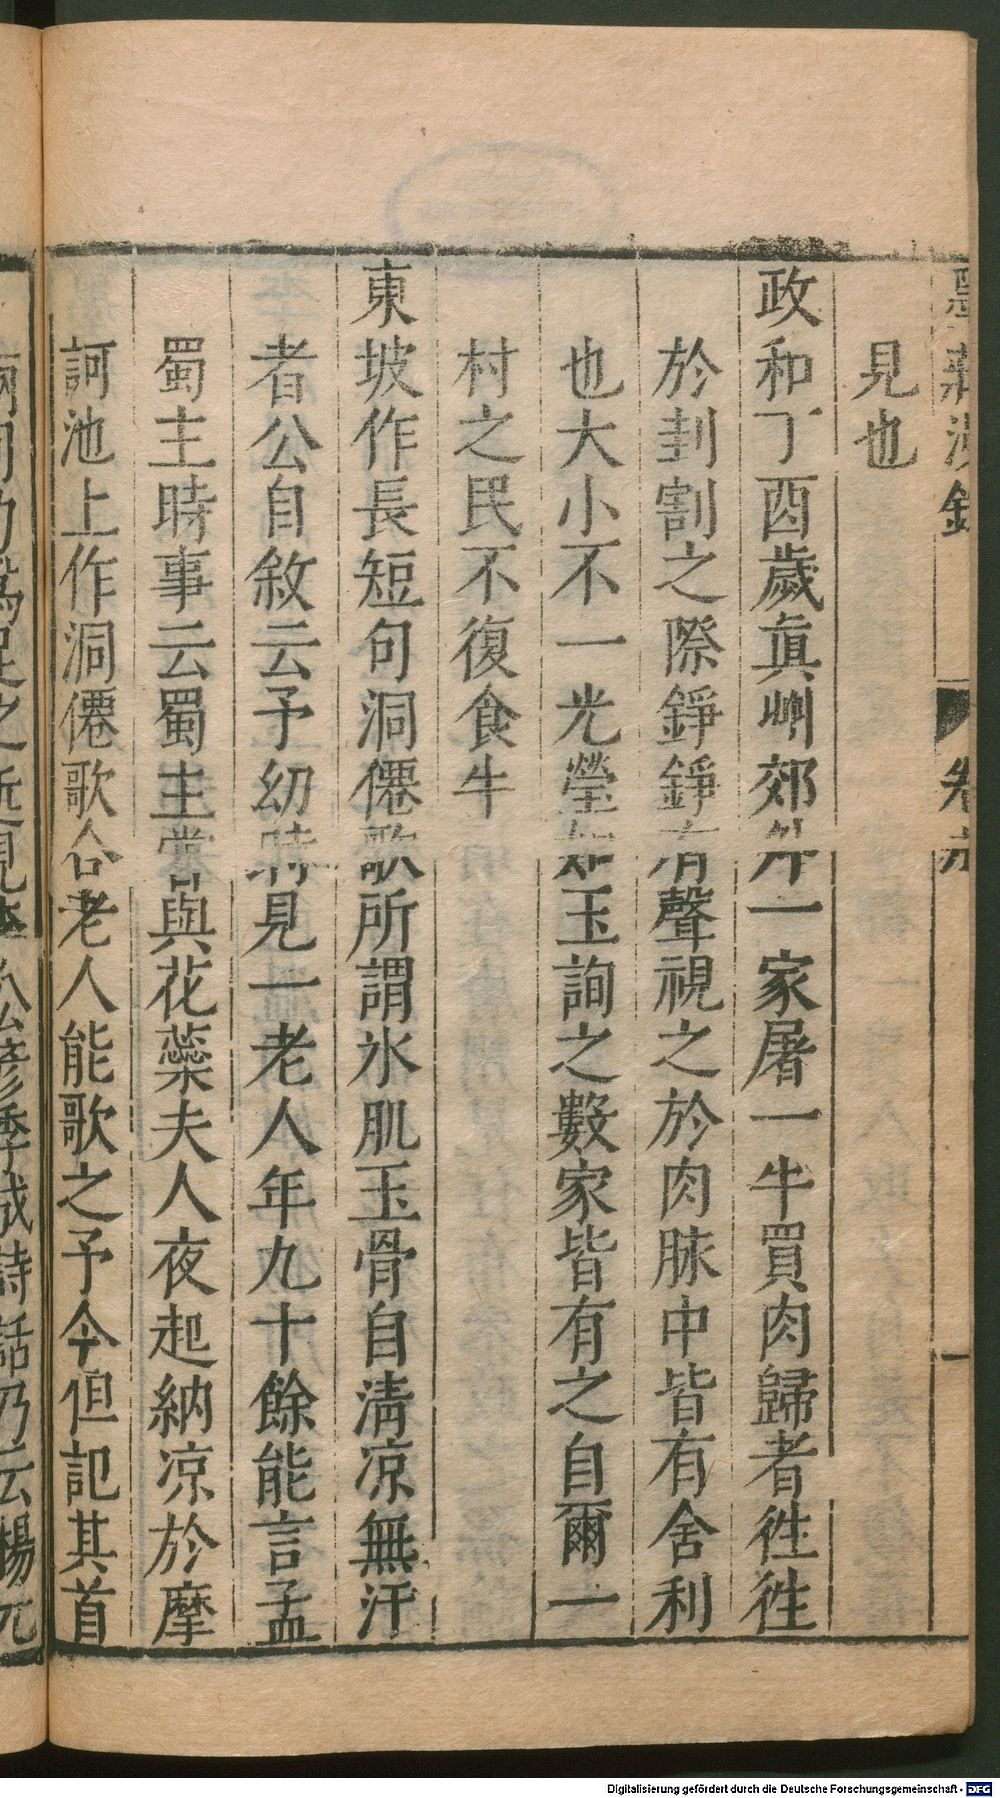 墨莊漫錄 卷六 一
見也
政和丁酉歲眞州郊外一家屠一牛買肉歸者徃徃
於刲割之際錚錚有聲視之於肉脉中皆有舍利
也大小不一光瑩如玉詢之數家皆有之自爾一
村之民不復食牛
東坡作長短句洞僊歌所謂氷肌玉骨自淸凉無汗
者公自敘云予幼時見一老人年九十餘能言孟
蜀主時事云蜀主嘗與花蘂夫人夜起納凉於摩
訶池上作洞僊歌令老人能歌之予今但記其首
兩句乃爲足之近見李公彥季成詩話乃云楊元
Digitalisierung gefördert durch die Deutsche Forschungsgemeinschaft - DFG